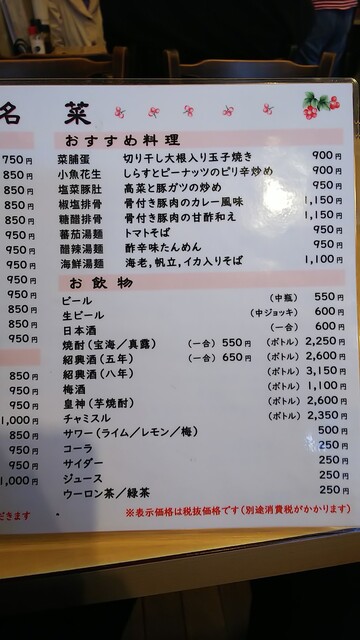 名 菜
750円
850円
850円
850円
950円
950円
950円
950円
950円
950円
850円
850円
950円
850円
950円
1,000円
850円
950円
1,000円
だきます
おすすめ料理
菜脯蛋 切り干し大根入り玉子焼き 900円
小魚花生 しらすとピーナッツのピリ辛炒め 900円
塩菜豚肚 高菜と豚ガツの炒め 950円
椒塩排骨 骨付き豚肉のカレー風味 1,150円
糖醋排骨 骨付き豚肉の甘酢和え 1,150円
蕃茄湯麺 トマトそば 950円
醋辣湯麺 酢辛味たんめん 950円
海鮮湯麺 海老,帆立,イカ入りそば 1,100円
お飲物
ビール (中瓶) 550円
生ビール (中ジョッキ) 600円
日本酒 (一合) 600円
焼酎(宝海/真露) (一合) 550円 (ボトル) 2,250円
紹興酒(五年) (一合) 650円 (ボトル) 2,600円
紹興酒(八年) (ボトル) 3,150円
梅酒 (ボトル) 1,100円
皇神(芋焼酎) (ボトル) 2,600円
チャミスル (ボトル) 2,350円
サワー(ライム/レモン/梅) 500円
コーラ 250円
サイダー 250円
ジュース 250円
ウーロン茶/緑茶 250円
※表示価格は税抜価格です(別途消費税がかかります)